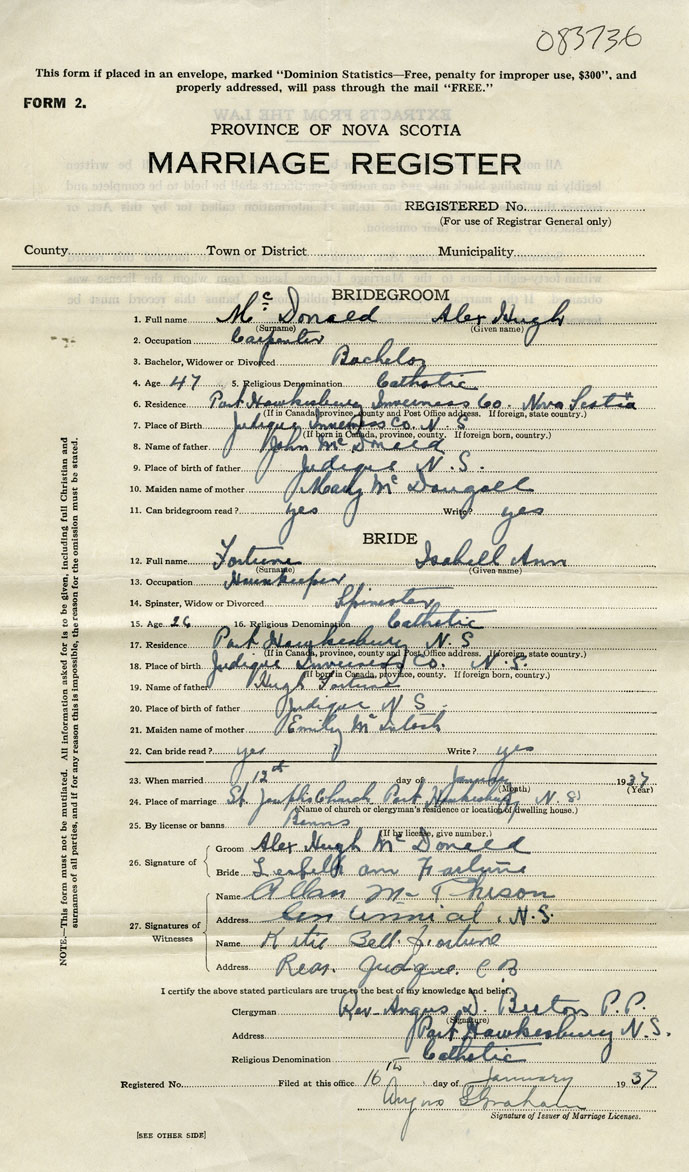 083736
This form if placed in an envelope, marked "Dominion Statistics—Free, penalty for improper use, $300", and
properly addressed, will pass through the mail "FREE."
FORM 2.
PROVINCE OF NOVA SCOTIA
MARRIAGE REGISTER
REGISTERED No.
(For use of Registrar General only)
County Town or District Municipality
BRIDEGROOM
1. Full name McDonald Alex Hugh
(Surname) (Given name)
2. Occupation Carpenter
3. Bachelor, Widower or Divorced Bachelor
4. Age 47 5. Religious Denomination Catholic
6. Residence Port Hawkesbury Inverness Co. Nova Scotia
(If in Canada, province, county and Post Office address. If foreign, state country.)
7. Place of Birth Judique Inverness Co. N S
(If born in Canada, province, county. If foreign born, country.)
8. Name of father John McDonald
9. Place of birth of father Judique N.S.
10. Maiden name of mother Mary McDougall
11. Can bridegroom read? yes Write? yes
BRIDE
12. Full name Fortune Isabell Ann
(Surname) (Given name)
13. Occupation Housekeeper
14. Spinster, Widow or Divorced Spinster
15. Age 26 16. Religious Denomination Catholic
17. Residence Port Hawkesbury N.S
(If in Canada, province, county and Post Office address. If foreign, state country.)
18. Place of birth Judique Inverness Co. N.S.
(If born in Canada, province, county. If foreign born, country.)
19. Name of father Hugh Fortune
20. Place of birth of father Judique N S
21. Maiden name of mother Emily McIntosh
22. Can bride read? yes Write? yes
23. When married 12th day of January 1937
(Month) (Year)
24. Place of marriage St. Josephs Church Port Hawkesbury N.S
(Name of church or clergyman's residence or location of dwelling house.)
25. By license or banns Banns
(If by license, give number.)
26. Signature of Groom Alex Hugh McDonald
Bride ann Fortune
27. Signatures of Witnesses
Name Allan
Address N.S.
Name Bell Fortune
Address Rear Judique C B
I certify the above stated particulars are true to the best of my knowledge and belief.
Clergyman Rev. Angus D. P.P.
(Signature)
Address Port Hawkesbury N.S.
Religious Denomination Catholic
Registered No. Filed at this office 16th day of January 1937
Angus Graham
Signature of Issuer of Marriage Licenses.
[SEE OTHER SIDE]
NOTE.—This form must not be mutilated. All information asked for is to be given, including full Christian and
surnames of all parties, and if for any reason this is impossible, the reason for the omission must be stated.